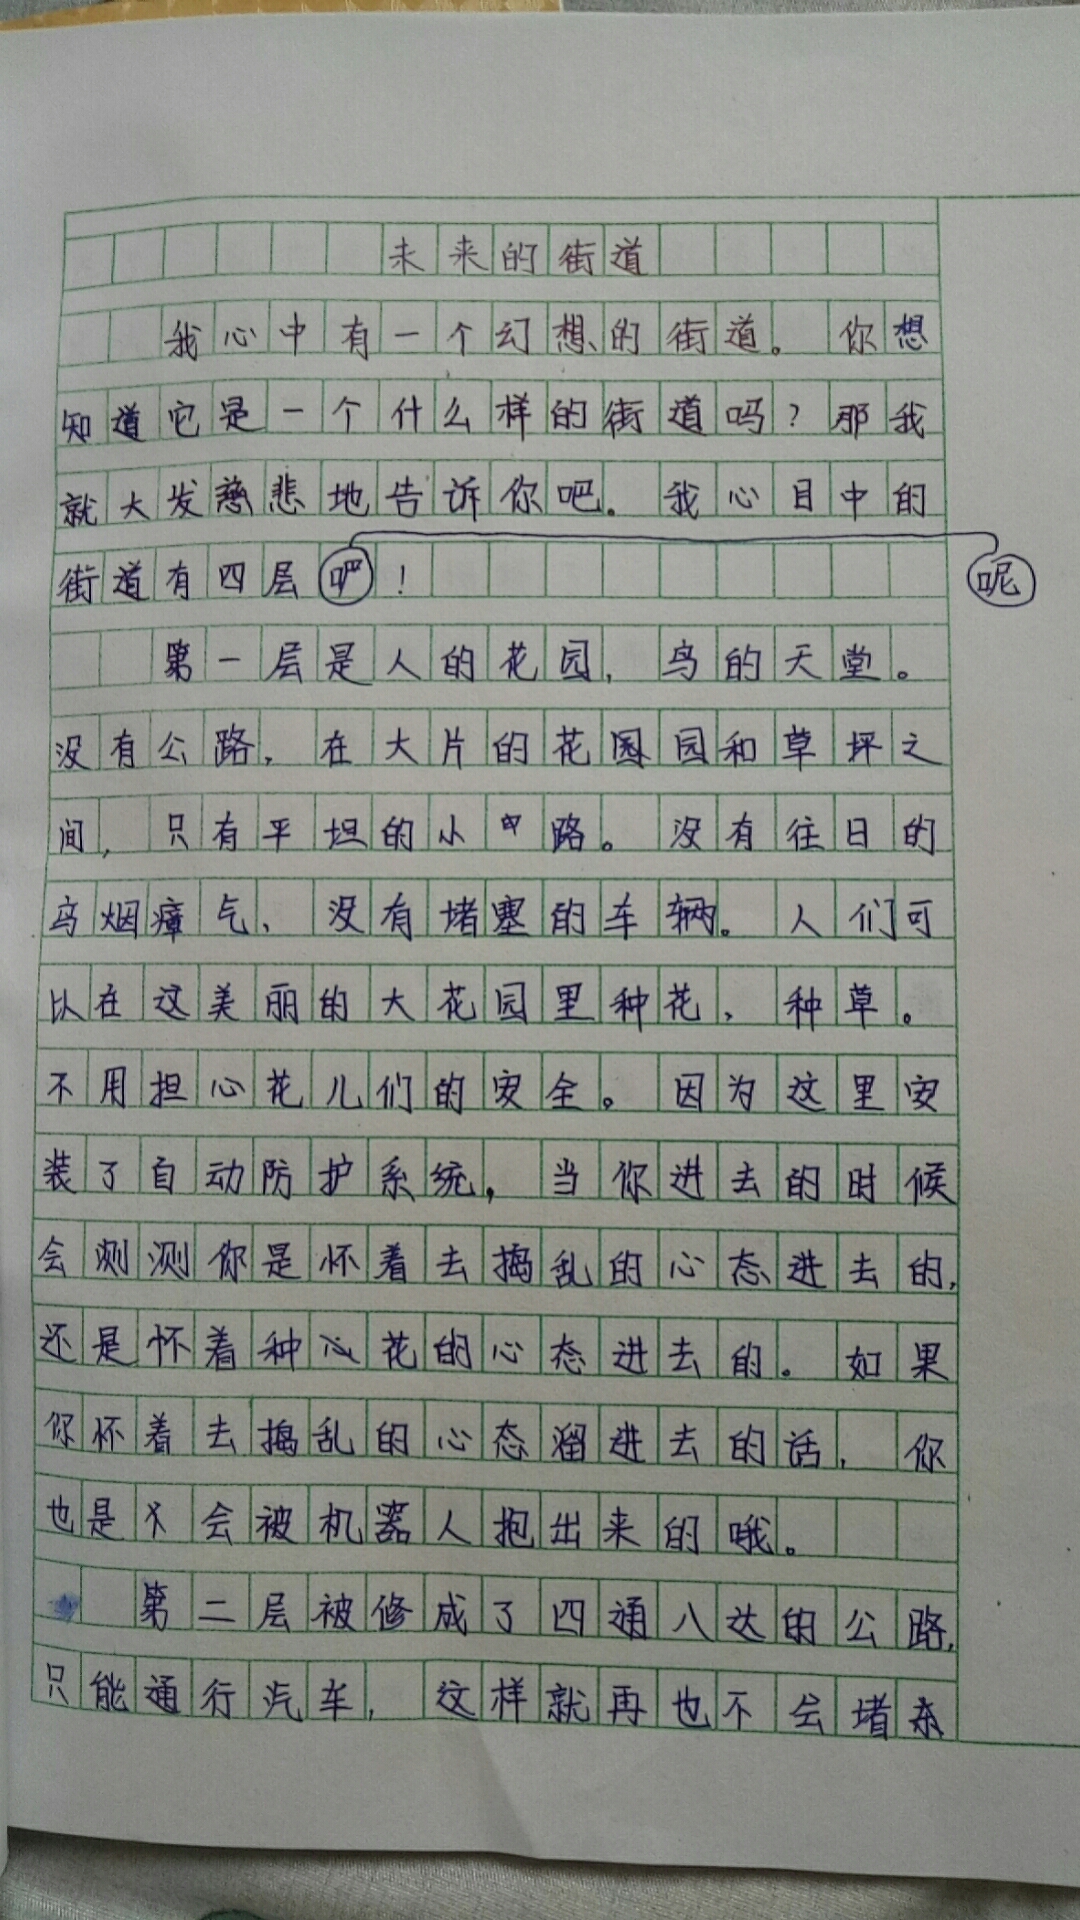 未来的街道
我心中有一个幻想的街道。你想
知道它是一个什么样的街道吗？那我
就大发慈悲地告诉你吧。我心目中的
街道有四层吧！
呢
第一层是人的花园，鸟的天堂。
没有公路，在大片的花园园和草坪之
间，只有平坦的小路。没有往日的
乌烟瘴气、没有堵塞的车辆。人们可
以在这美丽的大花园里种花、种草。
不用担心花儿们的安全。因为这里安
装了自动防护系统，当你进去的时候
会测你是怀着去捣乱的心态进去的，
还是怀着种花的心态进去的。如果
你怀着去捣乱的心态溜进去的话，你
也是不会被机器人抱出来的哦。
第二层被修成了四通八达的公路，
只能通行汽车，这样就再也不会堵